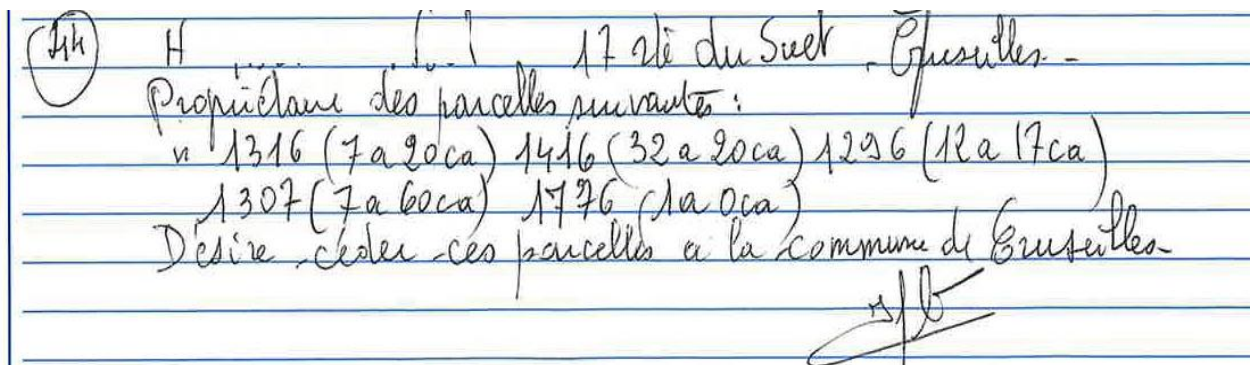 44 H 17 rte du Suet - Cruseilles -
Propriétaire des parcelles suivantes :
n° 1316 (7a 20ca) 1416 (32a 20ca) 1296 (12a 17ca)
1307 (7a 60ca) 1776 (1a 0ca)
Désire céder ces parcelles a la commune de Cruseilles-